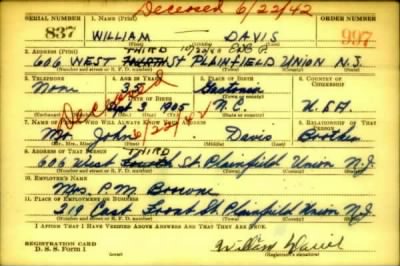 Deceased 6/22/42
SERIAL NUMBER 1. NAME (Print) ORDER NUMBER
837 WILLIAM DAVIS 997
(First) (Middle) (Last)
2. ADDRESS (Print) THIRD
606 WEST FOURTH ST PLAINFIELD UNION N.J.
(Number and street or R. F. D. number) (Town) (County) (State)
3. TELEPHONE 4. AGE IN YEARS 5. PLACE OF BIRTH 6. COUNTRY OF CITIZENSHIP
None 35 Gastonia
DATE OF BIRTH (Town or county)
9 1905 N.C. U.S.A.
Deceased 6/22/42
7. NAME OF PERSON WHO WILL ALWAYS KNOW YOUR ADDRESS 8. RELATIONSHIP OF THAT PERSON
Mr. John Davis Brother
(Mr., Mrs., Miss) (First) (Middle) (Last)
9. ADDRESS OF THAT PERSON THIRD
606 West Fourth St. Plainfield Union N.J.
(Number and street or R. F. D. number) (Town) (County) (State)
10. EMPLOYER'S NAME
Mrs. P. M. Browne
11. PLACE OF EMPLOYMENT OR BUSINESS
210 East Front St Plainfield Union N.J.
(Number and street or R. F. D. number) (Town) (County) (State)
I AFFIRM THAT I HAVE VERIFIED ABOVE ANSWERS AND THAT THEY ARE TRUE.
REGISTRATION CARD
D. S. S. Form 1
William Davis
(Registrant's signature)